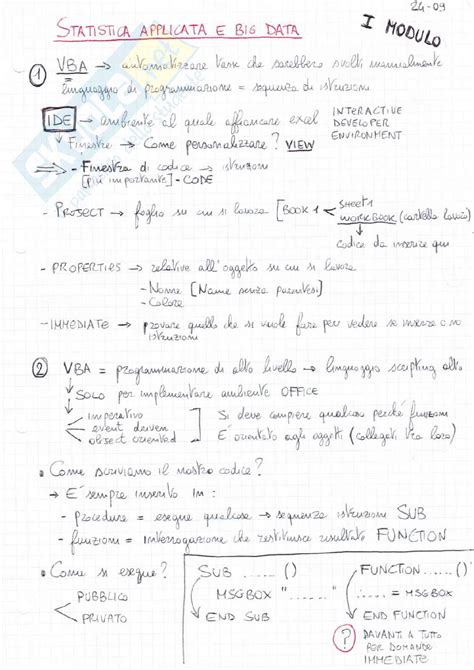 24-09
STATISTICA APPLICATA E BIG DATA
I MODULO
1 VBA → automatizzare task che sarebbero svolti manualmente
linguaggio di programmazione = sequenza di istruzioni
IDE → ambiente al quale affiancare excel INTERACTIVE DEVELOPER ENVIRONMENT
Finestre → Come personalizzare? VIEW
- Finestra di codice → istruzioni
[più importante] - CODE
- PROJECT → foglio su cui si lavora [BOOK 1 SHEET 1
WORKBOOK (cartella lavoro)
codice da inserire qui
- PROPERTIES → relative all'oggetto su cui si lavora
- Nome [Name senza parentesi]
- Colore
- IMMEDIATE → provare quello che si vuole fare per vedere se inserire o no
istruzioni
2 VBA = programmazione di alto livello → linguaggio scripting alto
SOLO per implementare ambiente OFFICE
imperativo
event driven
object oriented
Si deve compiere qualcosa perché funzioni
E' orientato agli oggetti (collegati tra loro)
• Come scriviamo il nostro codice?
→ E' sempre inserito in:
- procedure = esegue qualcosa → sequenza istruzioni SUB
- funzioni = interrogazione che restituisce risultato FUNCTION
• Come si esegue?
PUBBLICO
PRIVATO
SUB ...... ()
MSGBOX "......."
END SUB
FUNCTION ...... ()
..... = MSGBOX
END FUNCTION
? DAVANTI A TUTTO
PER DOMANDE
IMMEDIATE